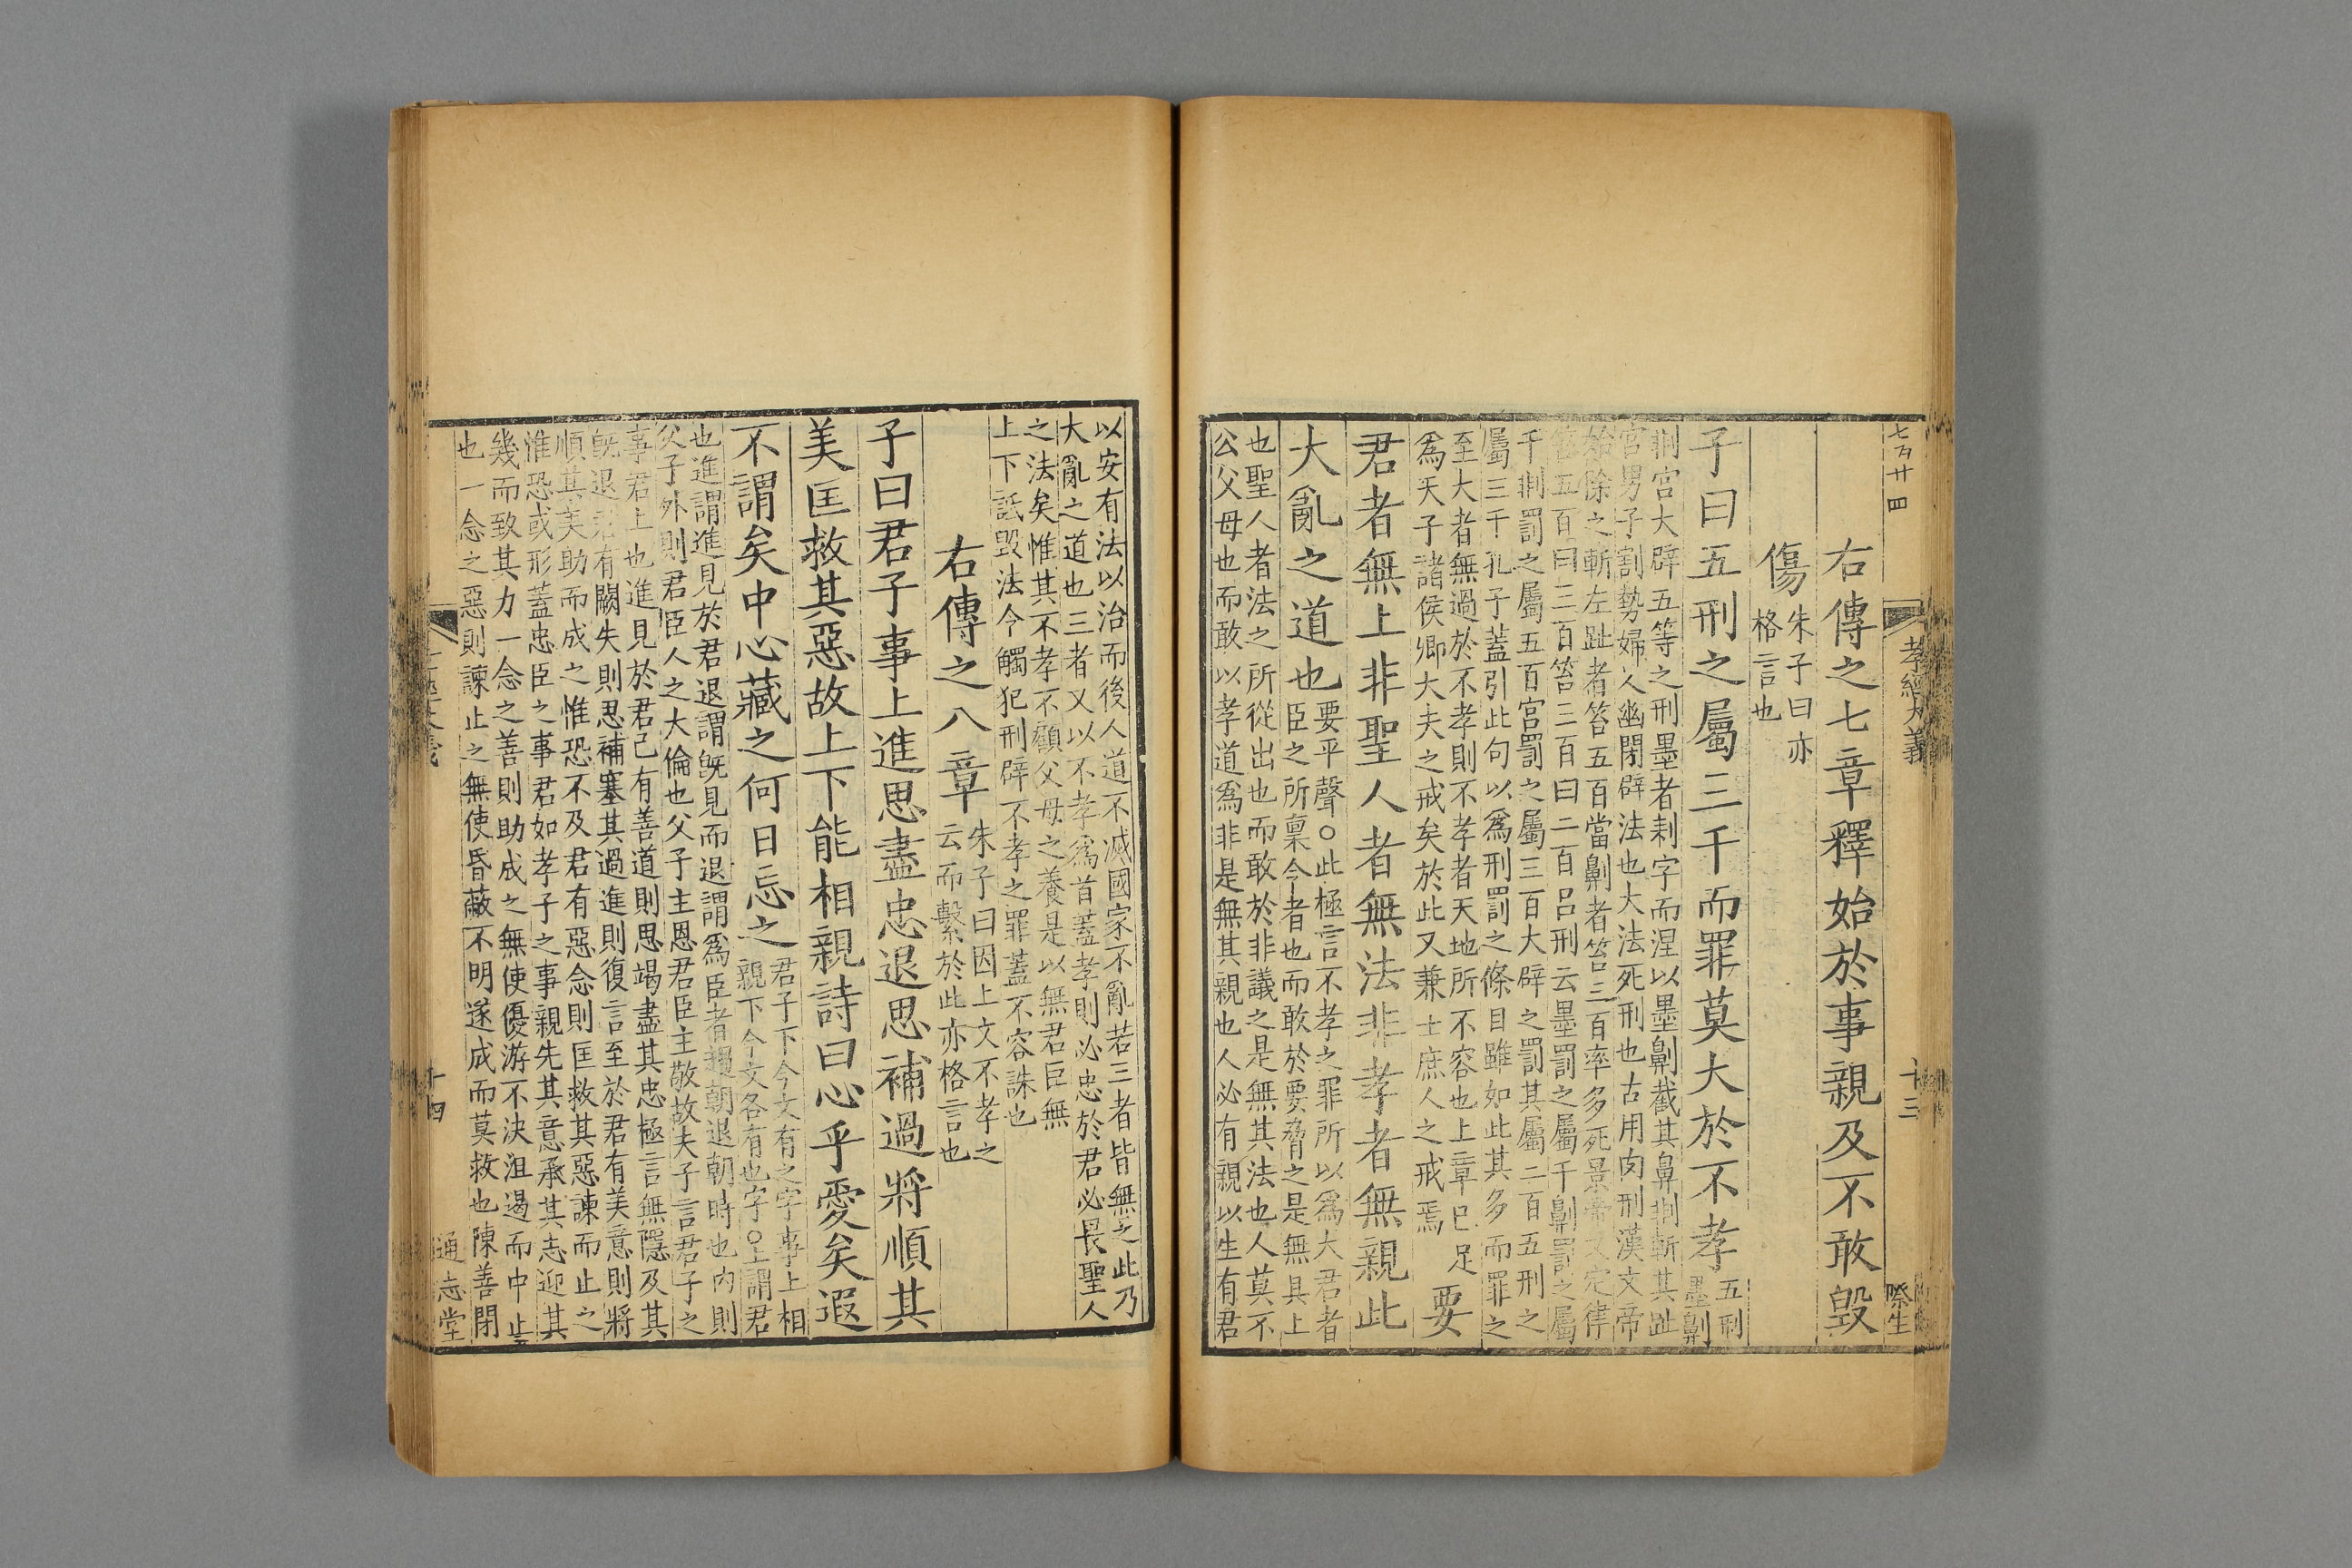 七百廿四
孝經大義
十三
際生
右傳之七章釋始於事親及不敢毀
傷
朱子曰亦
格言也
子曰五刑之屬三千而罪莫大於不孝
五刑
墨劓
剕宮大辟五等之刑墨者刺字而涅以墨劓截其鼻剕斬其趾
宮男子割勢婦人幽閉辟法也大法死刑也古用肉刑漢文帝
始除之斬左趾者笞五百當劓者笞三百率多死景帝又定律
笞五百曰三百笞三百曰二百呂刑云墨罰之屬千劓罰之屬
千剕罰之屬五百宮罰之屬三百大辟之罰其屬二百五刑之
屬三千孔子蓋引此句以為刑罰之條目雖如此其多而罪之
至大者無過於不孝則不孝者天地所不容也上章已足
為天子諸侯卿大夫之戒矣於此又兼士庶人之戒焉
要
君者無上非聖人者無法非孝者無親此
大亂之道也
要平聲○此極言不孝之罪所以為大君者
臣之所稟令者也而敢於要脅之是無其上
也聖人者法之所從出也而敢於非議之是無其法也人莫不
公父母也而敢以孝道為非是無其親也人必有親以生有君
以安有法以治而後人道不滅國家不亂若三者皆無之此乃
大亂之道也三者又以不孝為首蓋孝則必忠於君必畏聖人
之法矣惟其不孝不顧父母之養是以無君臣無
上下詆毀法令觸犯刑辟不孝之罪蓋不容誅也
右傳之八章
朱子曰因上文不孝之
云而繫於此亦格言也
子曰君子事上進思盡忠退思補過將順其
美匡救其惡故上下能相親詩曰心乎愛矣遐
不謂矣中心藏之何日忘之
君子下今文有之字事上相
親下今文各有也字○上謂君
也進謂進見於君退謂既見而退謂為臣者趨朝退朝時也內則
父子外則君臣人之大倫也父子主恩君臣主敬故夫子言君子之
事君上也進見於君己有善道則思竭盡其忠極言無隱及其
既退君有闕失則思補塞其過進則復言至於君有美意則將
順其美助而成之惟恐不及君有惡念則匡救其惡諫而止之
惟恐或形蓋忠臣之事君如孝子之事親先其意承其志迎其
幾而致其力一念之善則助成之無使優游不決沮遏而中止
也一念之惡則諫止之無使昏蔽不明遂成而莫救也陳善閉
十四
通志堂